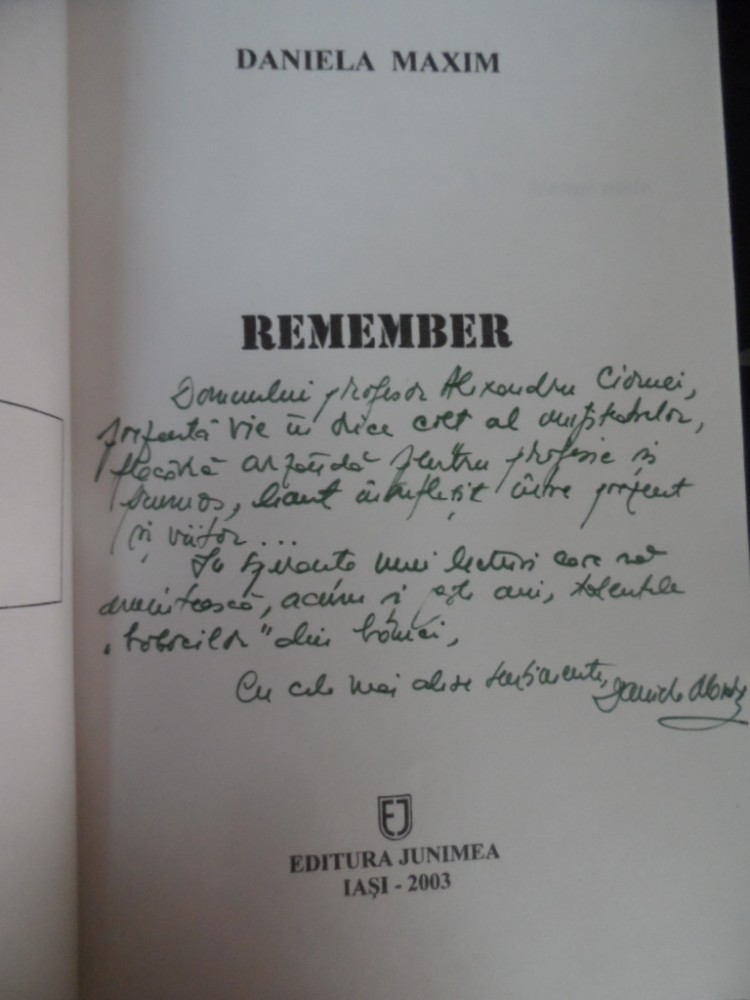 DANIELA MAXIM
REMEMBER
Domnului profesor Alexandru Ciornei,
prezență vie în orice colț al
flacără arzândă pentru profesie și
frumos, liant însuflețit între prezent
și viitor...
În speranța unei lecturi care să
amintească, acum și peste ani, talentele
"bobocilor" din bănci,
Cu cele mai alese sentimente,
EJ
EDITURA JUNIMEA
IAȘI - 2003